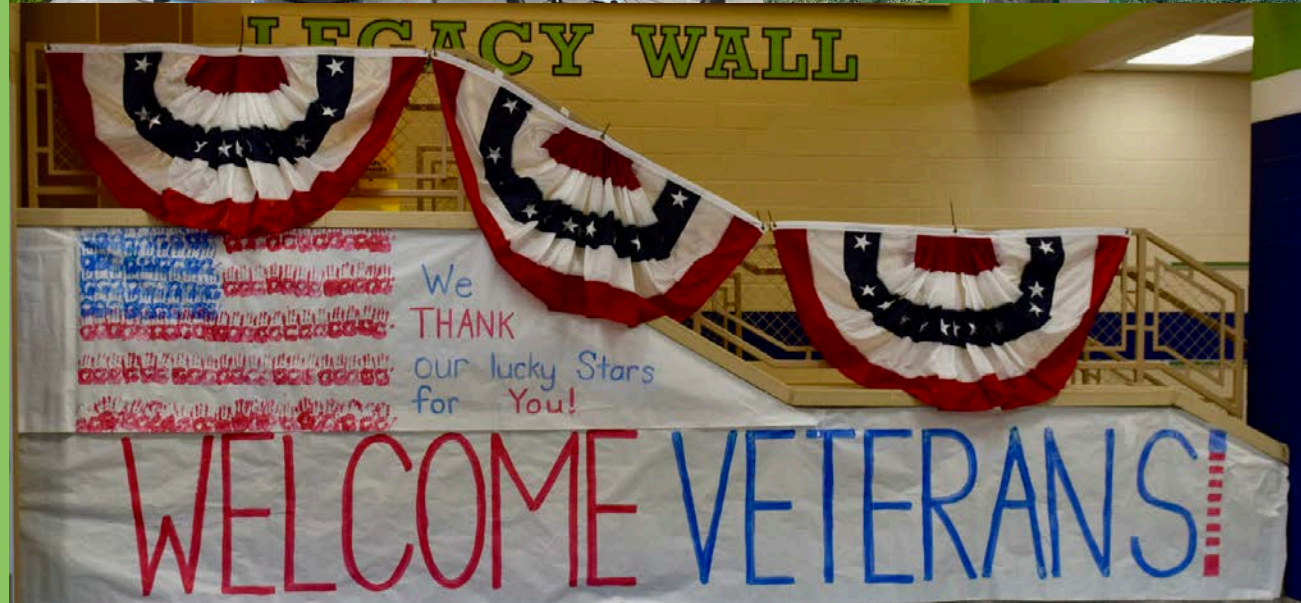 LEGACY WALL
We
THANK
our lucky Stars
for You!
WELCOME VETERANS!